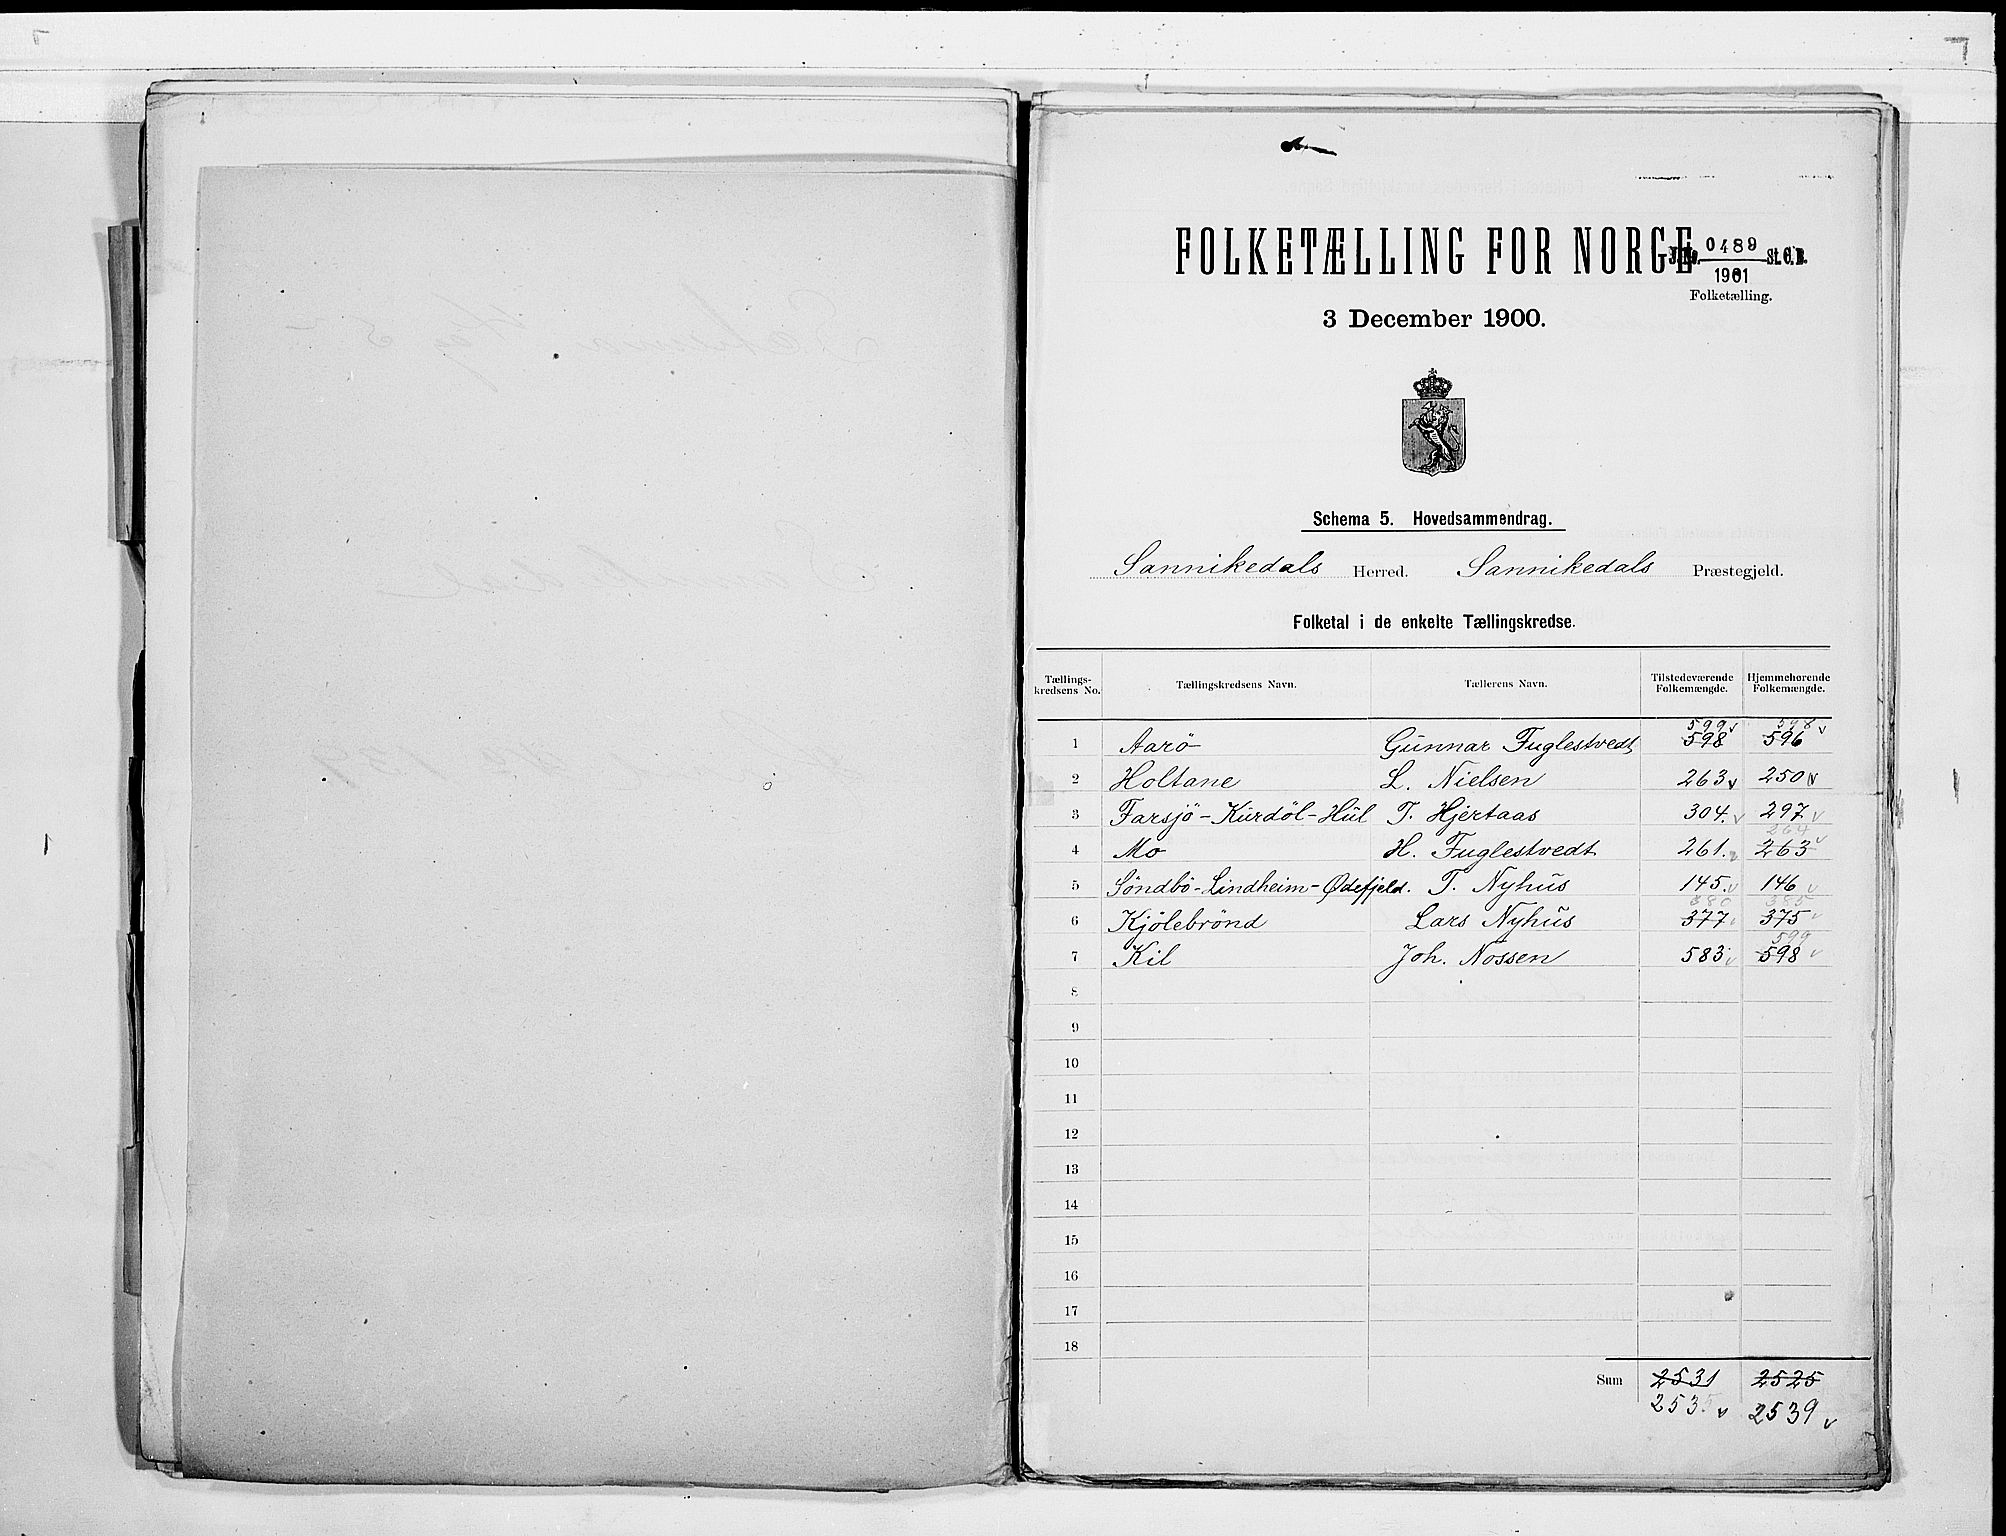 FOLKETÆLLING FOR NORGE
J. No. 0489 St. C. B.
1901
Folketælling.
3 December 1900.
Schema 5. Hovedsammendrag.
Sannikedals Herred. Sannikedals Præstegjeld.
Folketal i de enkelte Tællingskredse.
Tællings-kredsens No. Tællingskredsens Navn. Tællerens Navn. Tilstedeværende Folkemængde. Hjemmehørende Folkemængde.
599 598
1 Aarö Gunnar Fuglestvedt 598 596
2 Holtane L. Nielsen 263 250
3 Farsjö-Kurdöl-Hul T. Hjertaas 304. 297
264
4 Mo H. Fuglestvedt 261. 263
5 Söndbö-Lindheim-Ødefjeld. T. Nyhus 145. 146
380 385
6 Kjölebrönd Lars Nyhus 377 375
599
7 Kil Joh. Nossen 583 598
8
9
10
11
12
13
14
15
16
17
18
Sum 2531 2525
2535 2539